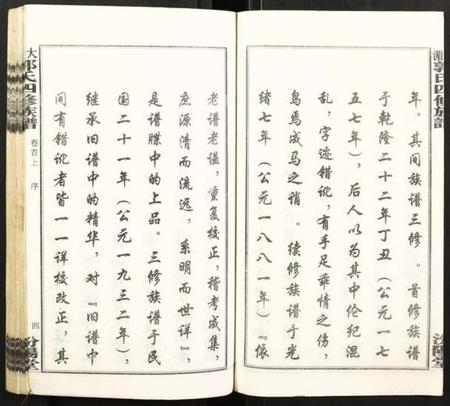 年。其间族谱三修。首修族谱
于乾隆二十二年丁丑(公元一七
五七年),后人以为其中伦纪混
乱,字迹错讹,有手足乖情之伤,
鸟焉成马之诮。续修族谱于光
绪七年(公元一八八一年)『依
老谱老谥,重复校正,稽考成集,
庶源清而流远,系明而世详』,
是谱牒中的上品。三修族谱于民
国二十一年(公元一九三二年),
继承旧谱中的精华,对『旧谱中
间有错讹者皆一一详校改正,其
郭氏四修族譜
汾陽堂
大郭氏四修族譜
卷首上 序
四
汾陽堂